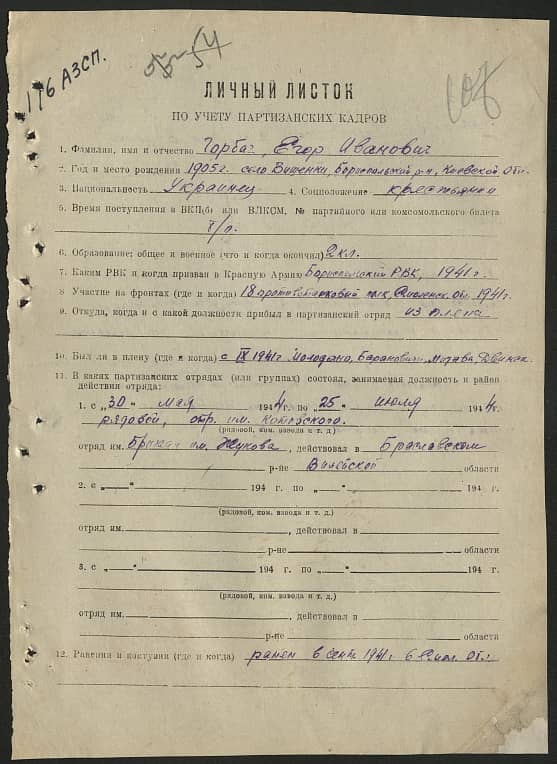 176 АЗСП.
54
108
ЛИЧНЫЙ ЛИСТОК
ПО УЧЕТУ ПАРТИЗАНСКИХ КАДРОВ
1. Фамилия, имя и отчество Горбач, Егор Иванович
2. Год и место рождения 1905г. село Вишенки, Бориспольский р-н, Киевской Обл.
3. Национальность Украинец 4. Соцположение крестьянин
5. Время поступления в ВКП(б) или ВЛКСМ, № партийного или комсомольского билета
б/п.
6. Образование: общее и военное (что и когда окончил) 2 кл.
7. Каким РВК и когда призван в Красную Армию Бориспольский РВК, 1941 г.
8. Участие на фронтах (где и когда) 18 противотанковый полк, Смоленск. Обл. 1941г.
9. Откуда, когда и с какой должности прибыл в партизанский отряд из плена
10. Был ли в плену (где и когда) с IX 1941г Молодечно, Барановичи, Митава, Двинск.
11. В каких партизанских отрядах (или группах) состоял, занимаемая должность и район
действия отряда:
1. с „30" мая 1944 г. по „25" июля 1944 г.
рядовой, отр. им. Котовского.
(рядовой, ком. взвода и т. д.)
отряд им. Бригады им. Жукова, действовал в Браславском
р-не Вилейской области
2. с „ " 194 г. по „ " 194 г.
(рядовой, ком. взвода и т. д.)
отряд им. , действовал в
р-не области
3. с „ " 194 г. по „ " 194 г.
(рядовой, ком. взвода и т. д.)
отряд им. , действовал в
р-не области
12. Ранения и контузии (где и когда) ранен в сент 1941 г. в Смол. Обл.